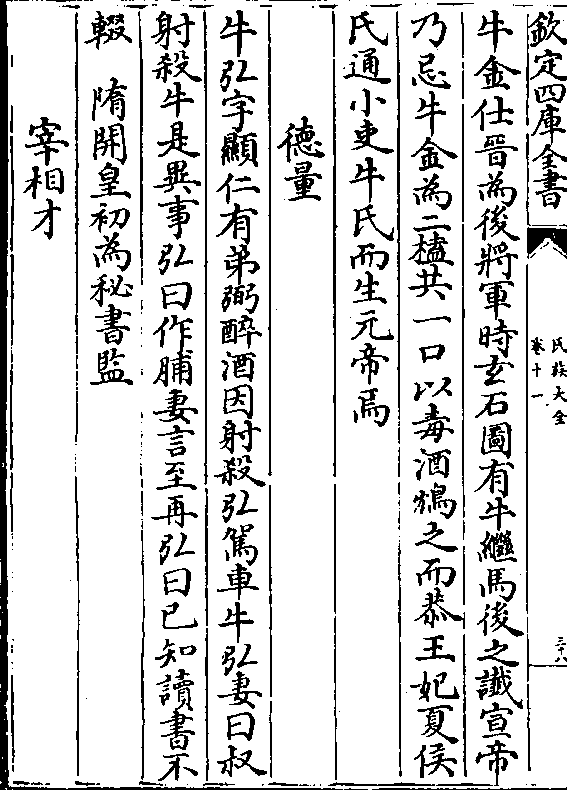 欽定四庫全書
氏族大全
卷十一
三十八
牛金仕晉為後將軍時玄石圖有牛繼馬後之讖宣帝
乃忌牛金為二榼共一口以毒酒鴆之而恭王妃夏侯
氏通小吏牛氏而生元帝焉
德量
牛弘字顯仁有弟弼醉酒因射殺弘駕車牛弘妻曰叔
射殺牛是異事弘曰作脯妻言至再弘曰已知讀書不
輟　隋開皇初為秘書監
宰相才